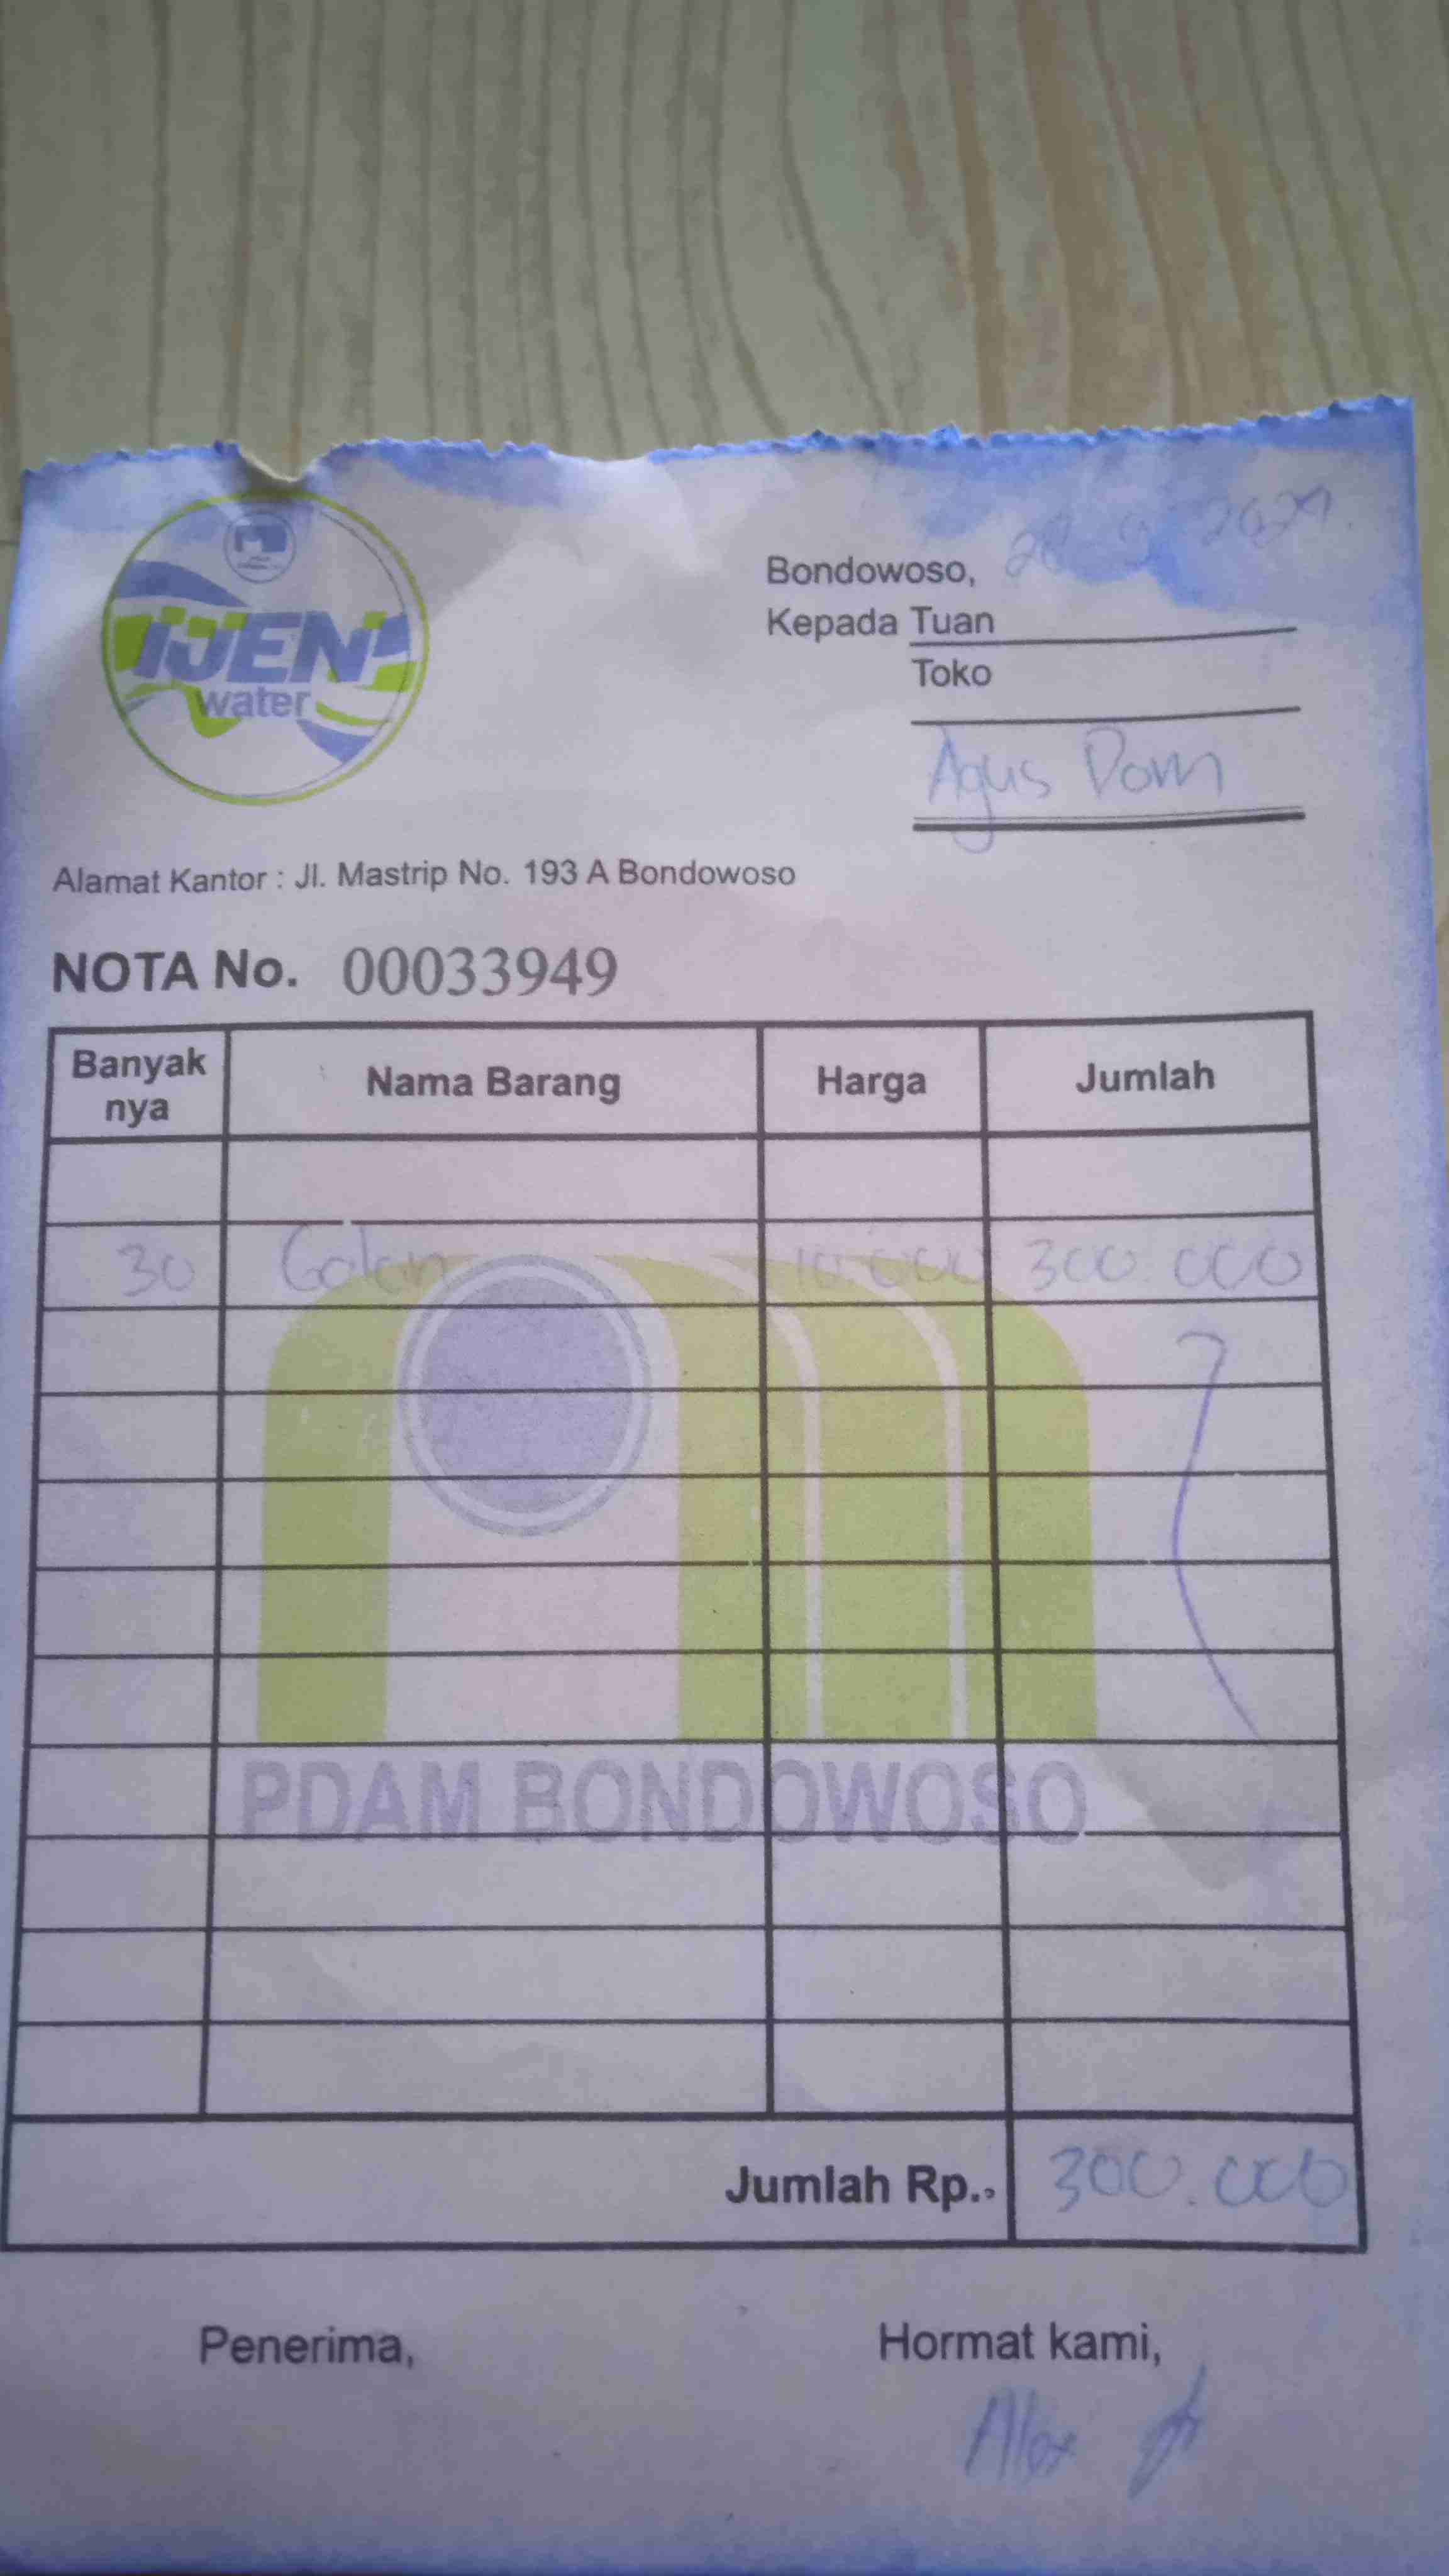 IJEN
water
Bondowoso,
Kepada Tuan
Toko
Agus Dom
Alamat Kantor : Jl. Mastrip No. 193 A Bondowoso
NOTA No. 00033949
Banyak nya Nama Barang Harga Jumlah
30 Galon 10.000 300.000
PDAM BONDOWOSO
Jumlah Rp., 300.000
Penerima, Hormat kami,
Alex